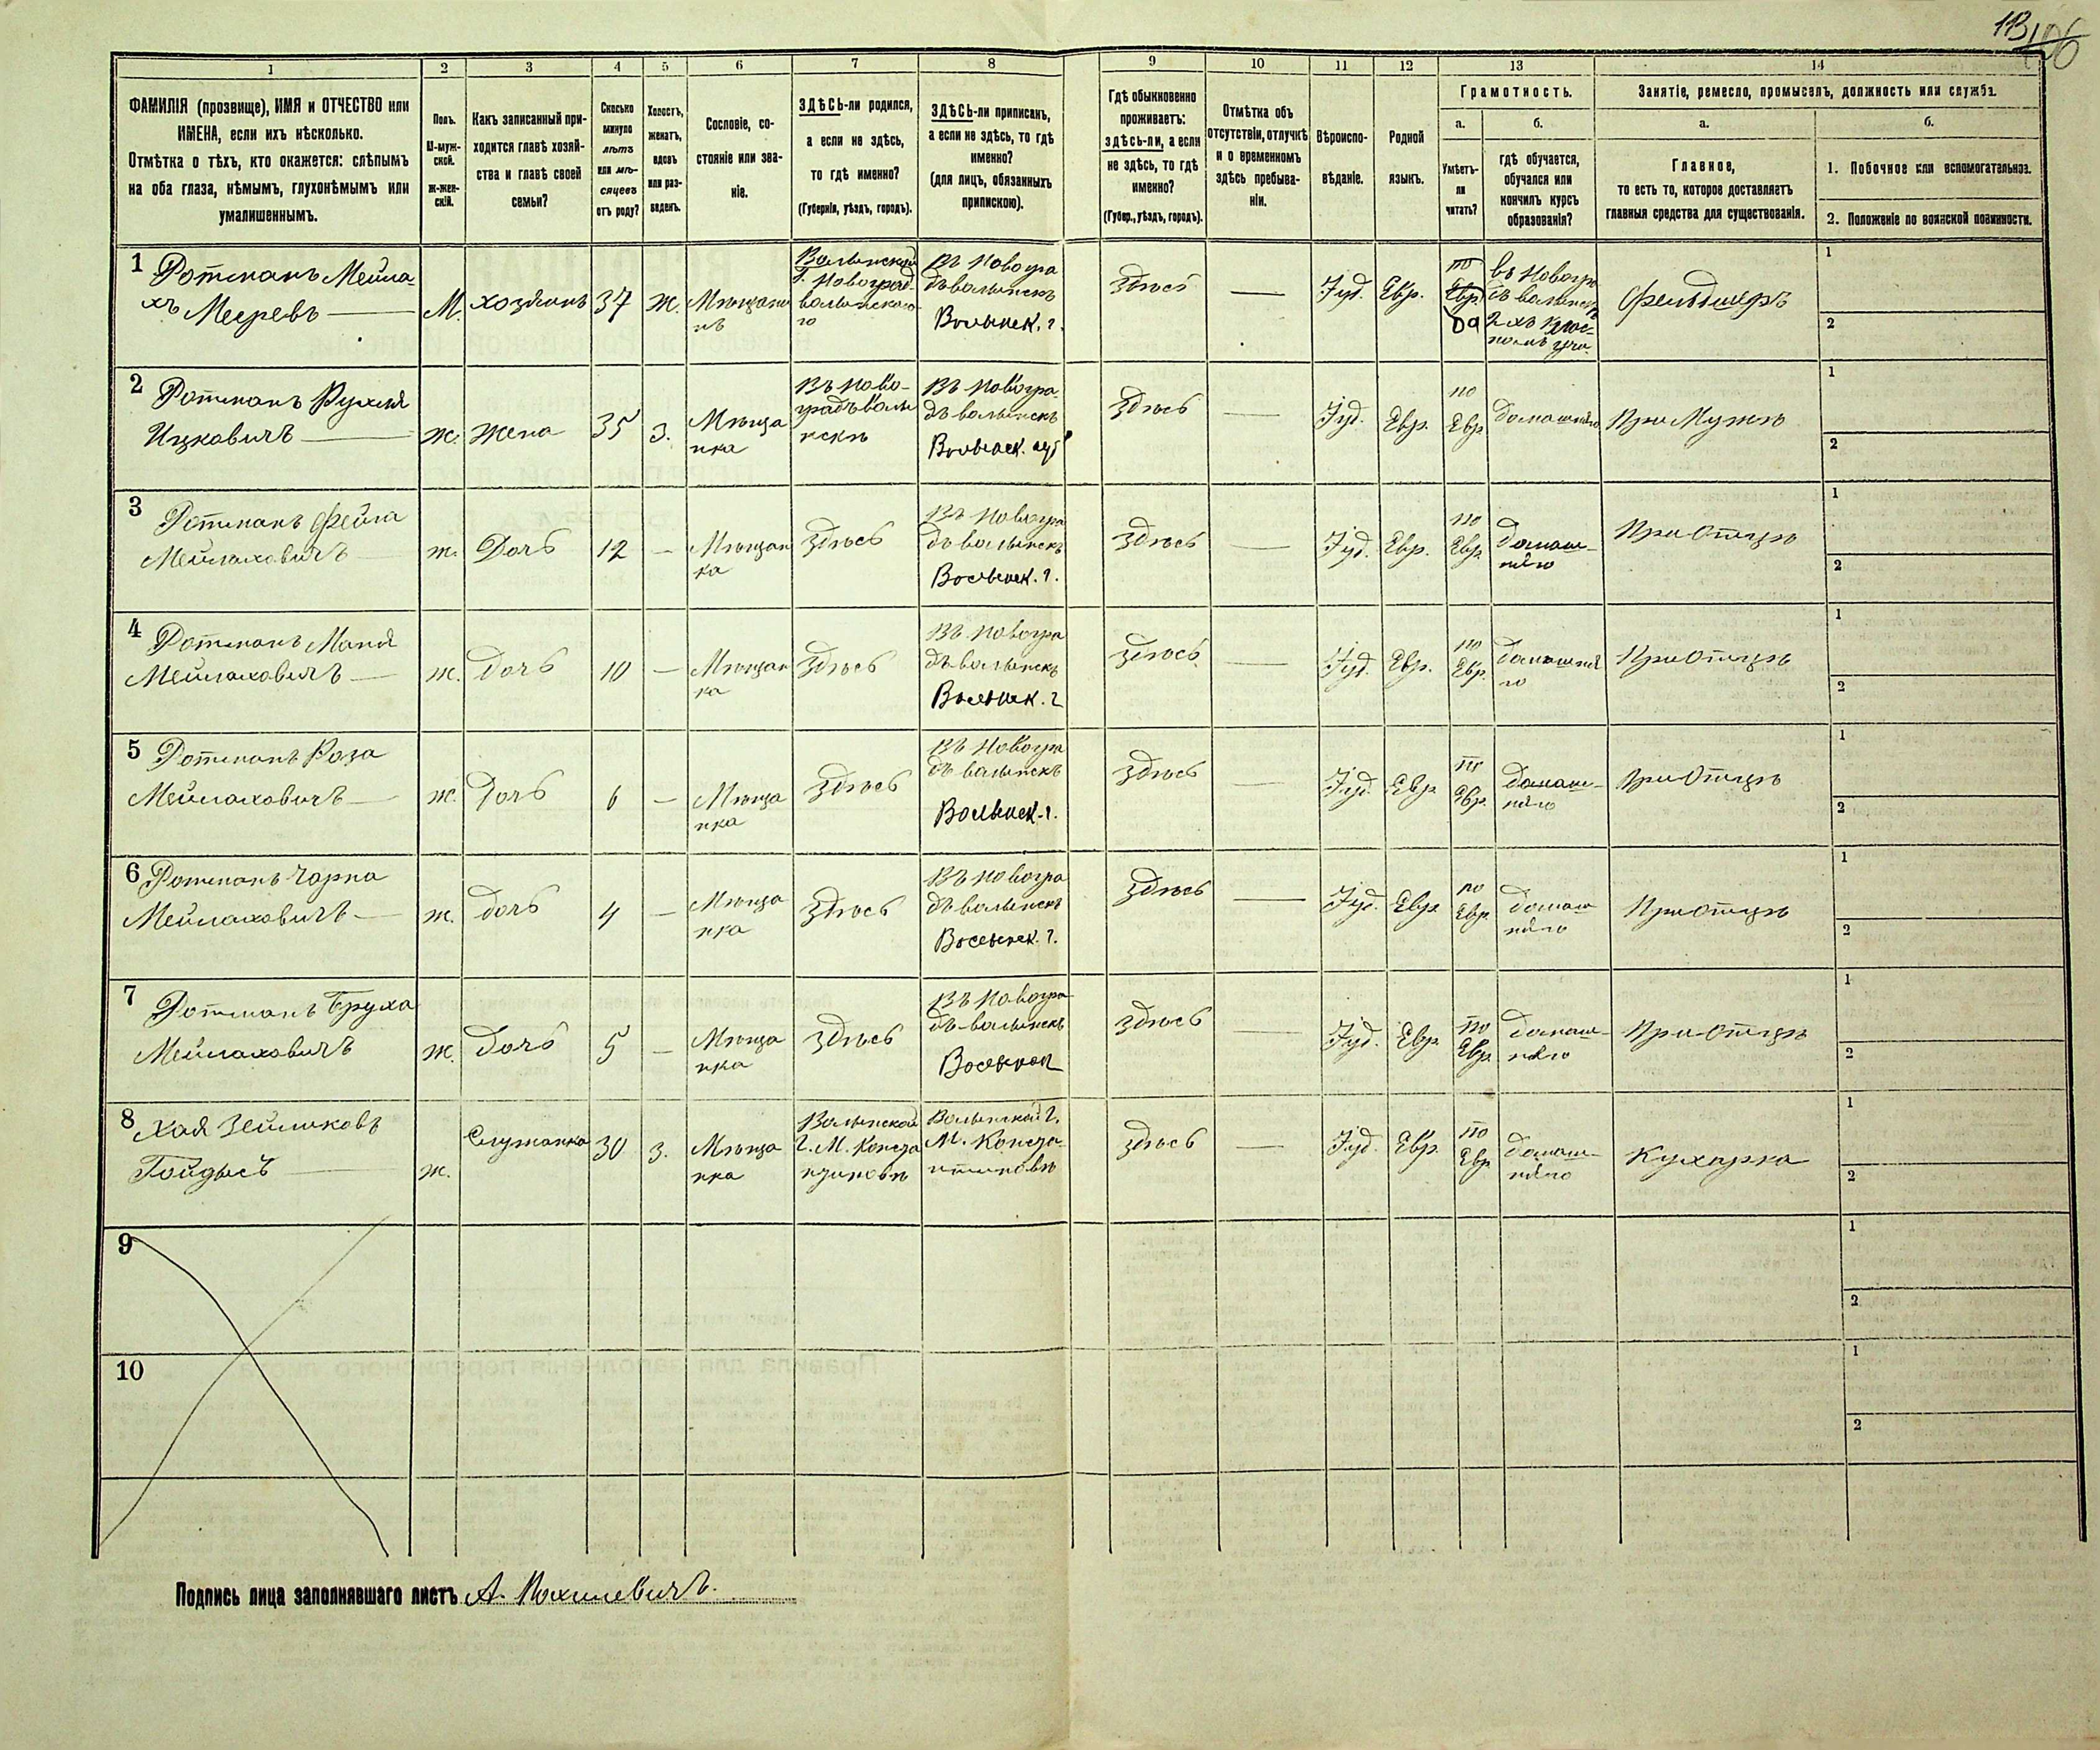 113
106
1
2
3
4
5
6
7
8
9
10
11
12
13
14
ФАМИЛІЯ (прозвище), ИМЯ и ОТЧЕСТВО или
ИМЕНА, если ихъ нѣсколько.
Отмѣтка о тѣхъ, кто окажется: слѣпымъ
на оба глаза, нѣмымъ, глухонѣмымъ или
умалишеннымъ.
Полъ.
М-муж-
ской.
Ж-жен-
скій.
Какъ записанный при-
ходится главѣ хозяй-
ства и главѣ своей
семьи?
Сколько
минуло
лѣтъ
или мѣ-
сяцевъ
отъ роду?
Холостъ,
женатъ,
вдовъ
или раз-
веденъ.
Сословіе, со-
стояніе или зва-
ніе.
ЗДѢСЬ-ли родился,
а если не здѣсь,
то гдѣ именно?
(Губернія, уѣздъ, городъ).
ЗДѢСЬ-ли приписанъ,
а если не здѣсь, то гдѣ
именно?
(для лицъ, обязанныхъ
припискою).
Гдѣ обыкновенно
проживаетъ:
здѣсь-ли, а если
не здѣсь, то гдѣ
именно?
(Губер., уѣздъ, городъ).
Отмѣтка объ
отсутствіи, отлучкѣ
и о временномъ
здѣсь пребыва-
ніи.
Вѣроиспо-
вѣданіе.
Родной
языкъ.
Грамотность.
а.
Умѣетъ-
ли
читать?
б.
гдѣ обучается,
обучался или
кончилъ курсъ
образованія?
Занятіе, ремесло, промыселъ, должность или служба.
а.
Главное,
то есть то, которое доставляетъ
главныя средства для существованія.
б.
1. Побочное или вспомогательное.
2. Положеніе по воинской повинности.
1 Ротманъ Мейла-
хъ Меерев
М.
хозяинъ
37
ж.
Мѣщани
нъ
Волынской
Г. Новоград-
волынского
Въ Новогра
дъволынскъ
Волынск. г.
Здѣсь
Іуд.
Евр.
по
Евр.
Да
въ Новогр
дъволынск
2хъ клас-
номъ учи.
фельдшеръ
1
2
2 Ротманъ Рухля
Ицковичъ
ж.
жена
35
з.
Мѣща
нка
Въ Ново-
градъволы
нскѣ
Въ Новогра
дъволынскъ
Волынск. губ
Здѣсь
Іуд.
Евр.
по
Евр
домашнѣго
При Мужѣ
1
2
3 Ротманъ Фейга
Мейлаховичъ
ж.
Дочь
12
Мѣщан
ка
Здѣсь
Въ Новогра
дъволынскъ
Волынск. г.
Здѣсь
Іуд.
Евр.
по
Евр.
домаш-
нѣго
При Отцѣ
1
2
4 Ротманъ Маня
Мейлаховичъ
ж.
Дочь
10
Мѣщан
ка
Здѣсь
Въ Новогра
дъволынскъ
Волынск. г
Здѣсь
Іуд.
Евр.
по
Евр.
домашнѣ
го
При Отцѣ
1
2
5 Ротманъ Роза
Мейлаховичъ
ж.
Дочь
6
Мѣща
нка
Здѣсь
Въ Новогра
дъволынскъ
Волынск. г.
Здѣсь
Іуд.
Евр.
по
Евр.
домаш-
нѣго
При Отцѣ
1
2
6 Ротманъ Чарна
Мейлаховичъ
ж.
дочь
4
Мѣща
нка
Здѣсь
Въ Новогра
дъволынскъ
Волынск. г.
Здѣсь
Іуд.
Евр.
по
Евр.
домаш
нѣго
При Отцѣ
1
2
7 Ротманъ Бруха
Мейлаховичъ
ж.
дочь
5
Мѣща
нка
Здѣсь
Въ Новогра
дъволынскъ
Волынск
Здѣсь
Іуд.
Евр.
по
Евр.
домаш-
нѣго
При Отцѣ
1
2
8 Хая Зейликовъ
ж.
Служанка
30
з.
Мѣща
нка
Волынской
Г. М. Конста
нтиновѣ
Волынской г.
М. Конста-
нтиновѣ
Здѣсь
Іуд.
Евр.
по
Евр
домаш-
нѣго
Кухарка
1
2
9
1
2
10
1
2
Подпись лица заполнявшаго листъ А.